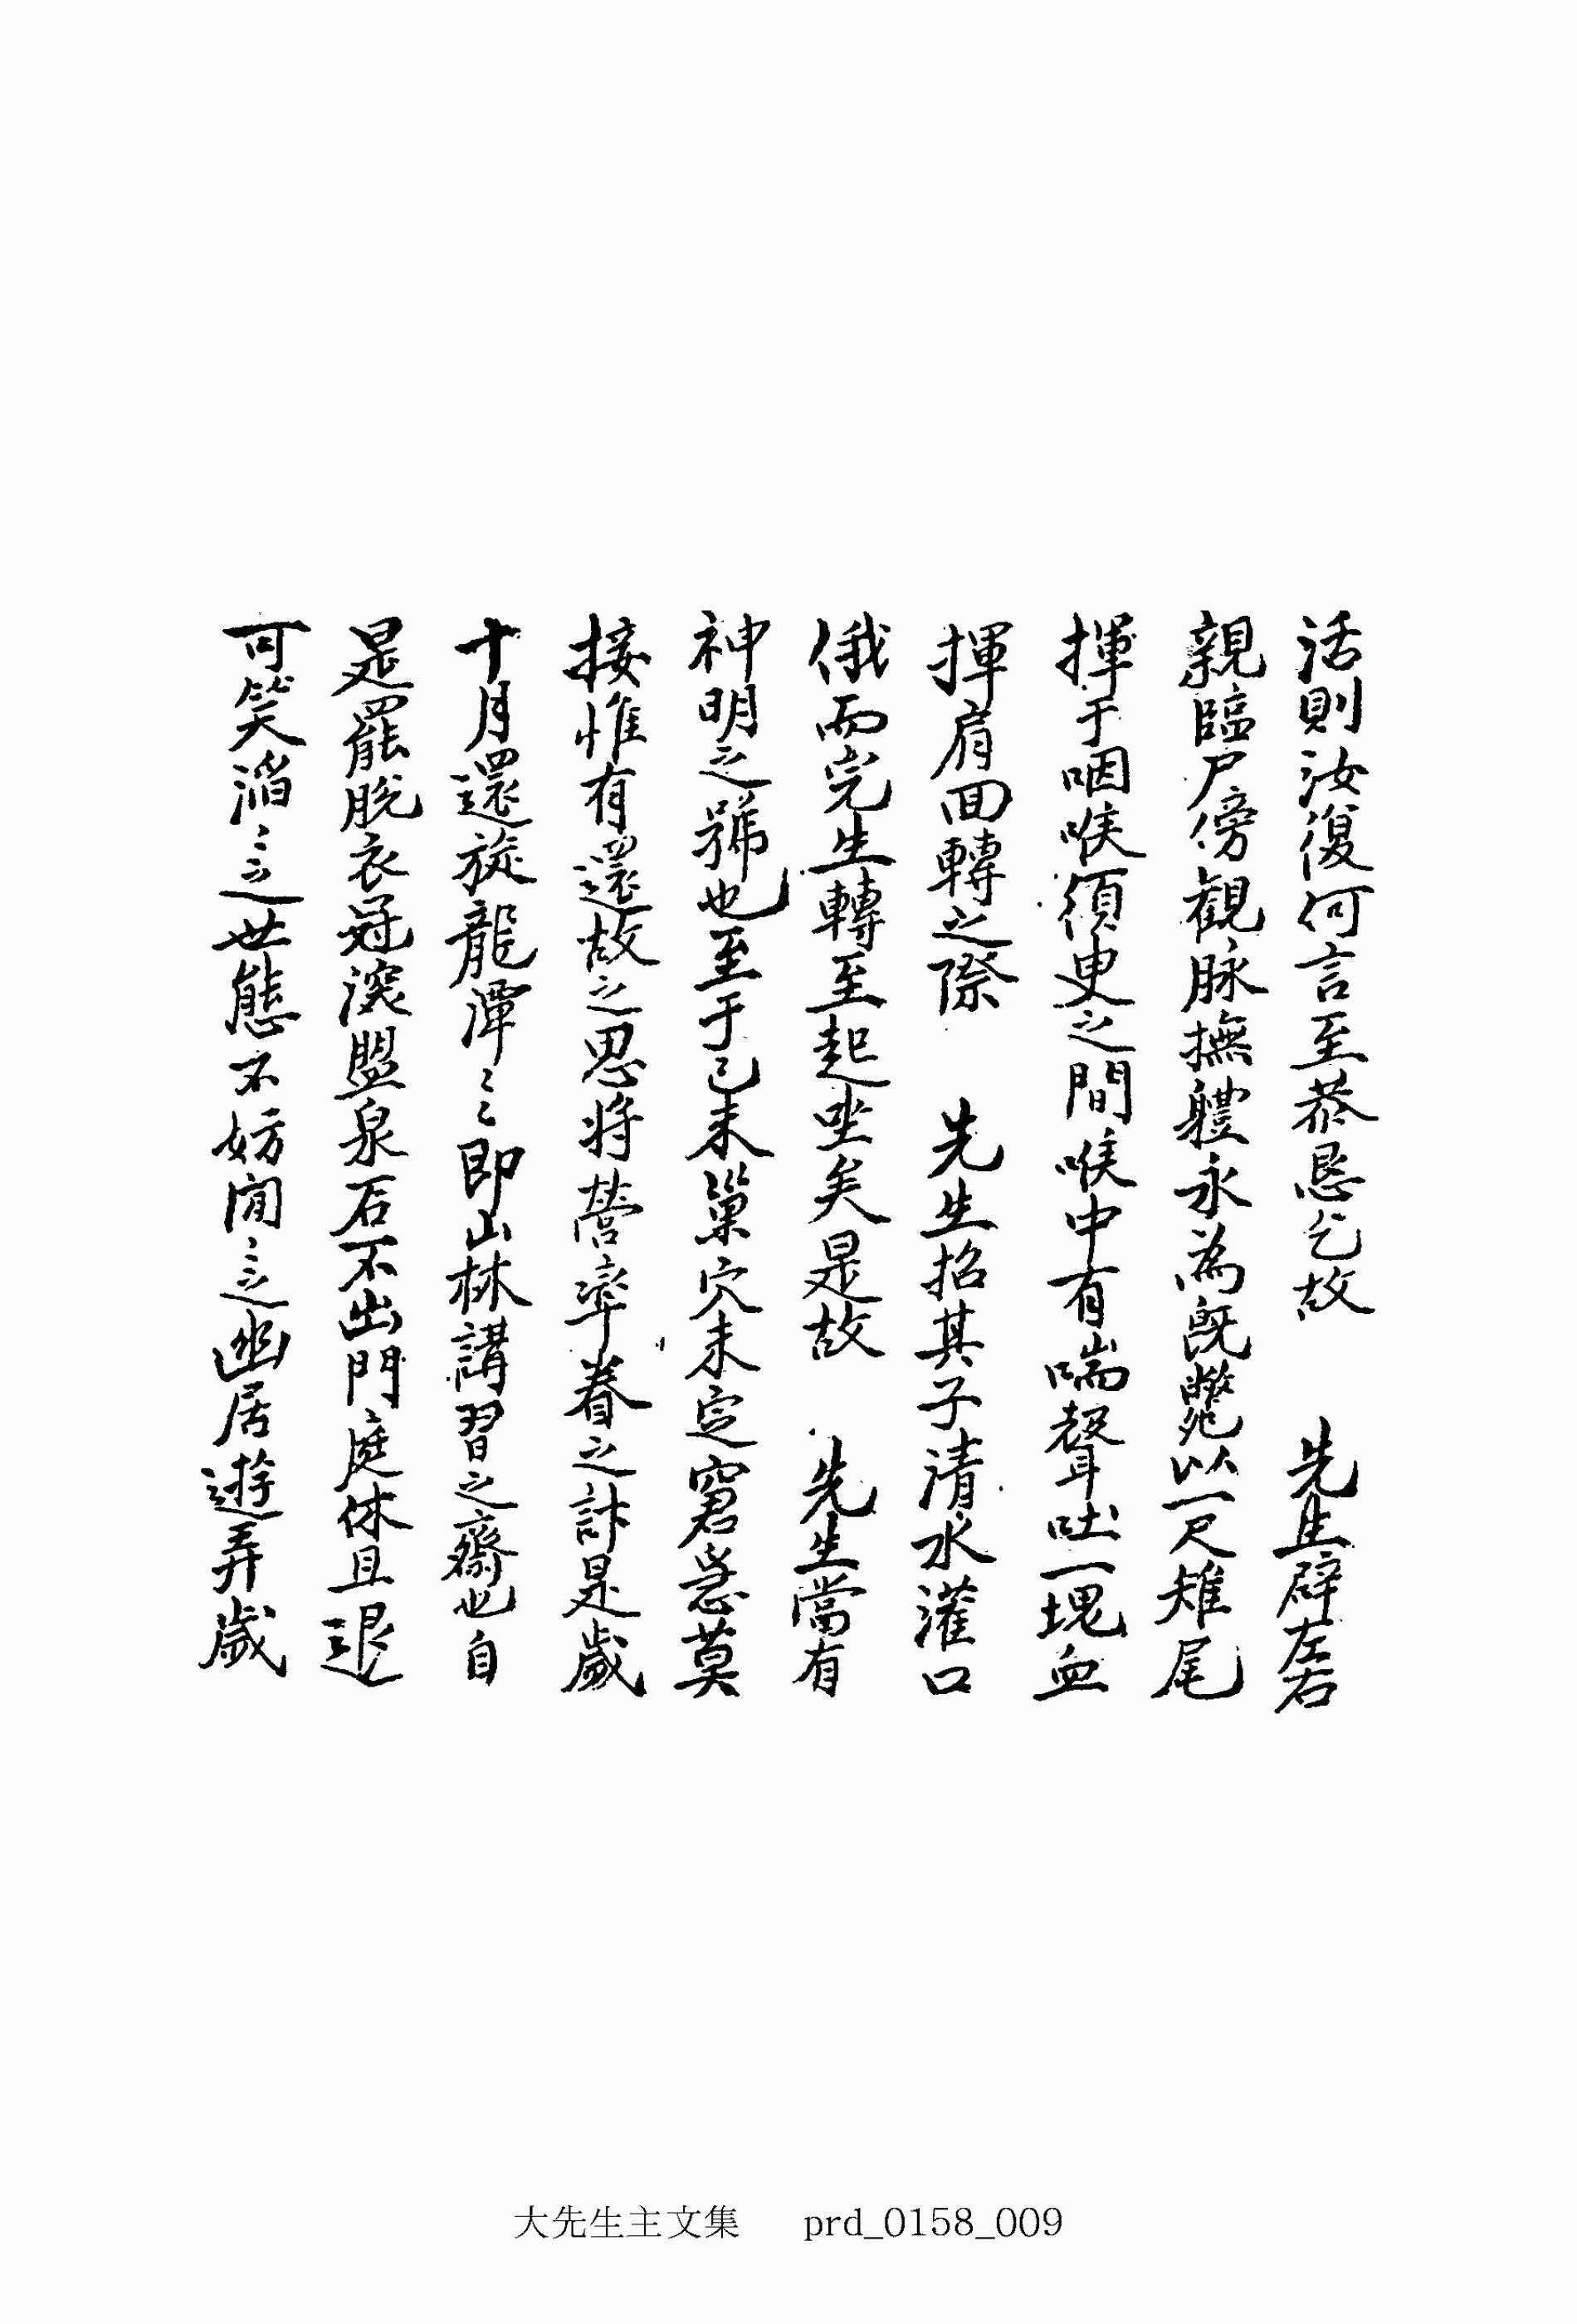 活則汝復何言至恭恳乞故　先生辟左右
親臨尸傍觀脉撫軆永為旣斃以一尺雉尾
揮于咽喉須臾之間喉中有喘聲吐一塊血
揮肩回轉之際　先生招其子清水灌口
俄而完生轉至起坐矣是故　先生當有
神明之號也至于己未巢穴未定窘急莫
接惟有還故之思將營率眷之計是歲
十月還旋龍潭〻〻即山林講習之齋也自
是罷脫衣冠深盟泉石不出門庭休且退
可笑滔〻之世態不妨閒〻之幽居遊弄歲
大先生主文集 prd_0158_009